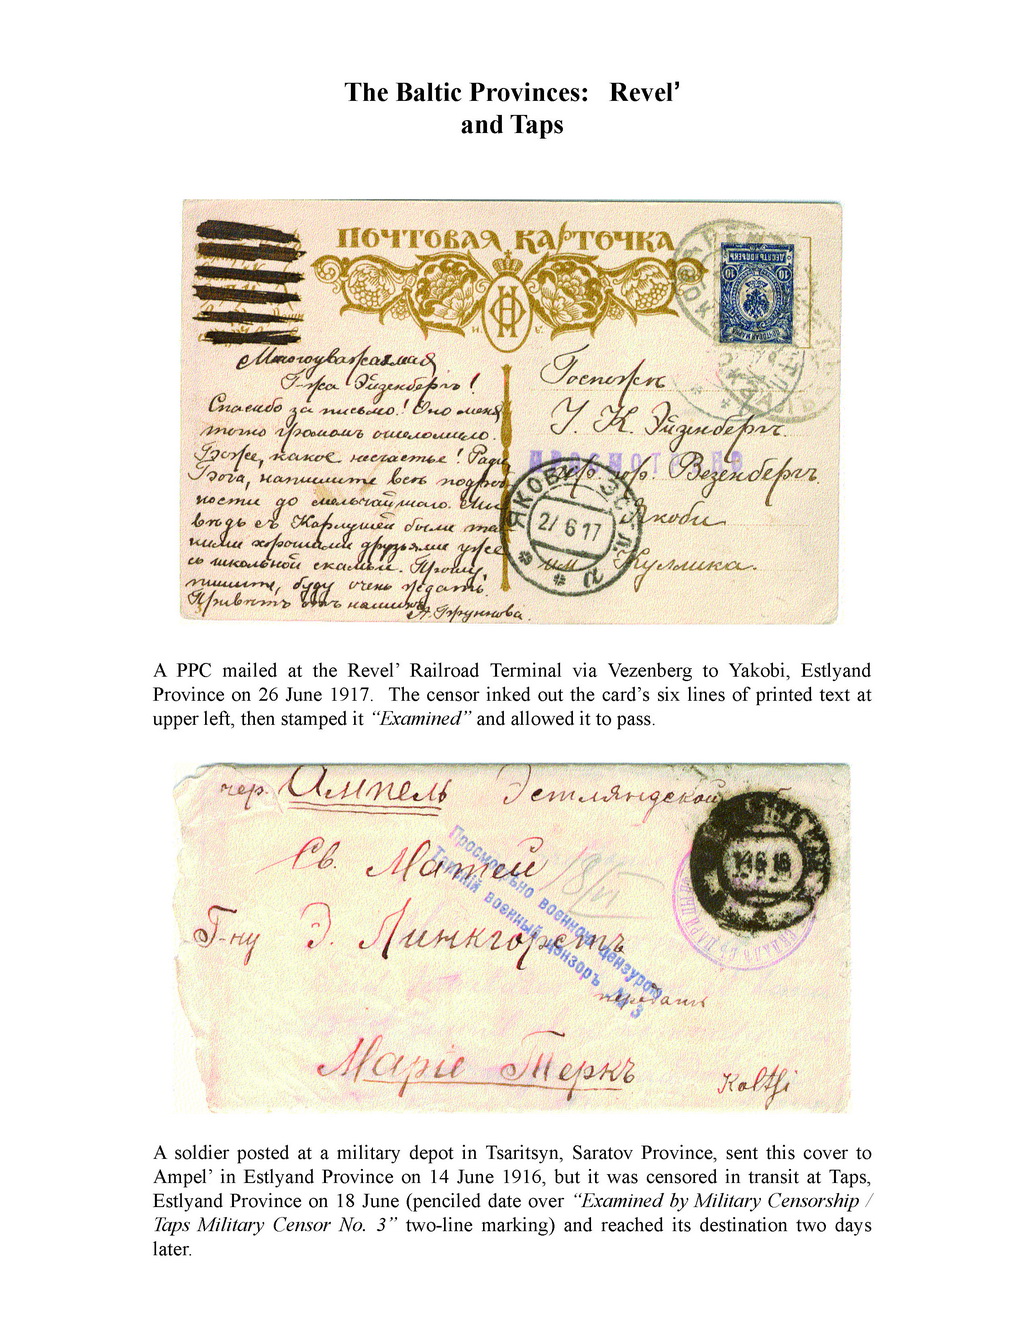 The Baltic Provinces: Revel’
and Taps
ПОЧТОВАЯ КАРТОЧКА
И. Е.
ДЕСЯТЬ КОПѢЕКЪ
10 10
Многоуважаемая
Г-жа Эйзенбергъ!
Спасибо за письмо! Оно меня
точно громомъ ошеломило.
Боже, какое несчастье! Ради
Бога, напишите всѣ подроб
ности до мельчайшаго. Мы
вѣдь съ Карлушей были та
кими хорошими друзьями уже
со школьной скамьи. Прошу,
пишите, буду очень ждать.
Привѣтъ отъ нашихъ
А. Грункова.
Госпожѣ
Э. К. Эйзенбергъ.
пр. Везенбергъ
Якоби
им. Куллика.
ПРОСМОТРѢНО
ЯКОБИ ЭСТЛ.
2/ 6 17
а
ВОКЗАЛЪ
A PPC mailed at the Revel’ Railroad Terminal via Vezenberg to Yakobi, Estlyand
Province on 26 June 1917. The censor inked out the card’s six lines of printed text at
upper left, then stamped it “Examined” and allowed it to pass.
чер. Ампель Эстляндской
Св. Матеи
18/VI
Г-ну Э. Линкгорстъ
передать
Маріе Теркъ
Просмотрѣно военной цензурою
Тапсскій военный цензоръ № 3
14 6 16
A soldier posted at a military depot in Tsaritsyn, Saratov Province, sent this cover to
Ampel’ in Estlyand Province on 14 June 1916, but it was censored in transit at Taps,
Estlyand Province on 18 June (penciled date over “Examined by Military Censorship /
Taps Military Censor No. 3” two-line marking) and reached its destination two days
later.